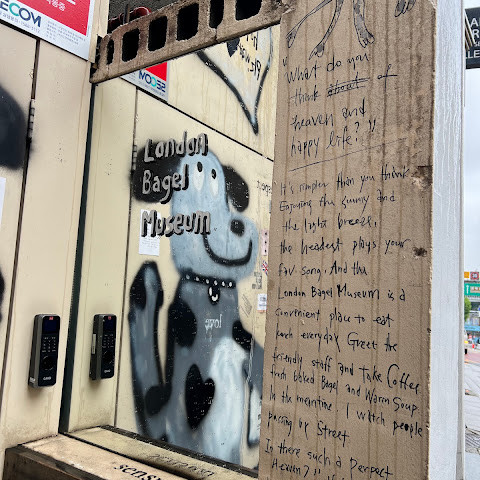 ECOM
SECOM
London
Bagel
Museum
"What do you
think about of
heaven and
happy life?"
It's simpler than you think
Enjoying the sunny and
the light breeze,
the headset plays your
fav song. And the
London Bagel Museum is a
convenient place to eat
each everyday. Greet the
friendly staff and take Coffee
fresh baked Bagel and Warm Soup
In the meantime, I watch people
passing by Street
Is there such a perfect
Heaven?"
love